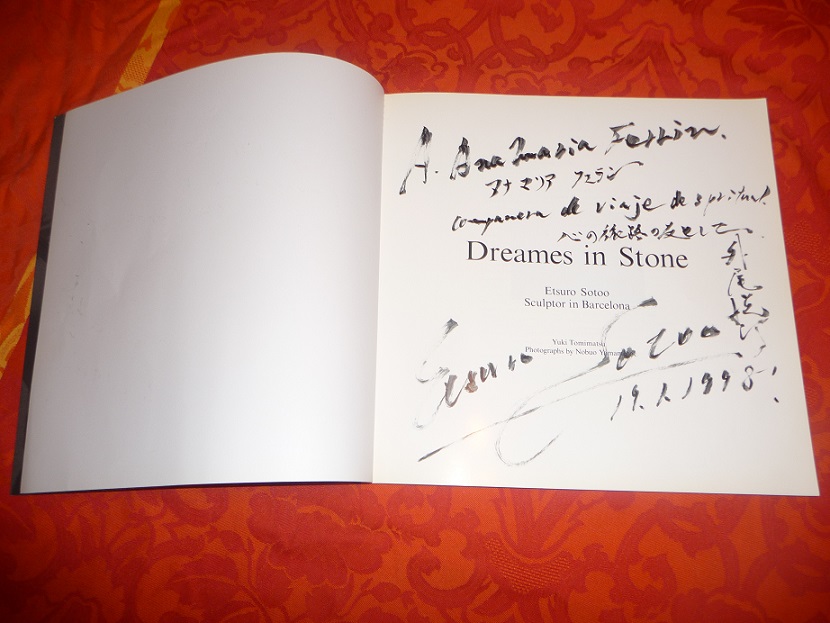 A. Ana Maria Ferrin.
アナ マリア フェラン
companera de viaje de spritual.
心の旅路の友として、
Dreames in Stone
外尾悦郎
Etsuro Sotoo
Sculptor in Barcelona
Yuki Tomimatsu
Photographs by Nobuo
Etsuro Sotoo